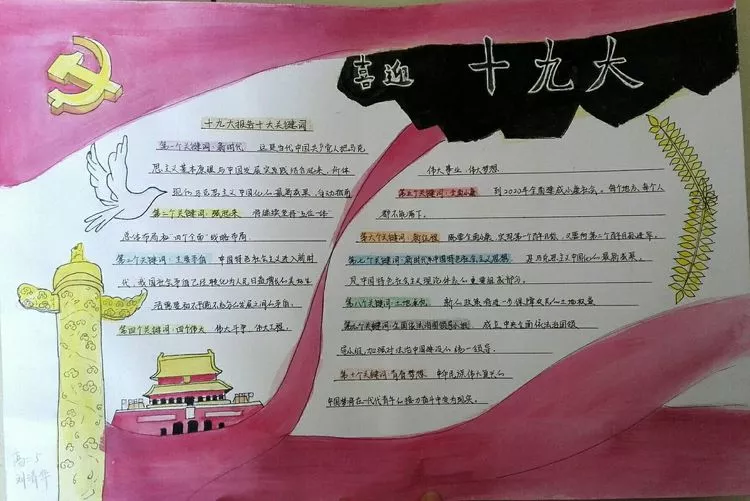 喜迎 十九大
十九大报告十大关键词
第一个关键词：新时代 这是当代中国共产党人把马克
思主义基本原理与中国发展实
现的马克思主义中国化的最新成果，
第二个关键词：强起来 将继续坚持"五位一体"
总体布局和"四个全面"战略布局
第三个关键词：主要矛盾 中国特色社会主义进入新时
代，我国社会矛盾已经转化为人民日益增长的美好生
活需要和不平衡不充分的发展之间的矛盾。
第四个关键词：四个伟大 伟大斗争，伟大工程，
伟大事业，伟大梦想
第五个关键词：全面小康 到2020年全面建成小康社会。每个地方、每个人
都不能落下。
第六个关键词：新征程 既要全面小康，实现第一个百年目标，又要向第二个百年目标进军。
第七个关键词：新时代中国特色社会主义思想 是马克思主义中国化的最新成果。
是中国特色社会主义理论体系的重要组成部分。
第八个关键词：土地承包 新的政策将进一步保障农民的土地权益
第九个关键词：全面依法治国领导小组 成立中央全面依法治国领
导小组，加强对法治中国建设的统一领导。
第十个关键词：青春梦想 中华民族伟大复兴的
中国梦将在一代代青年的接力奋斗中变为现实。
高一5
刘清华